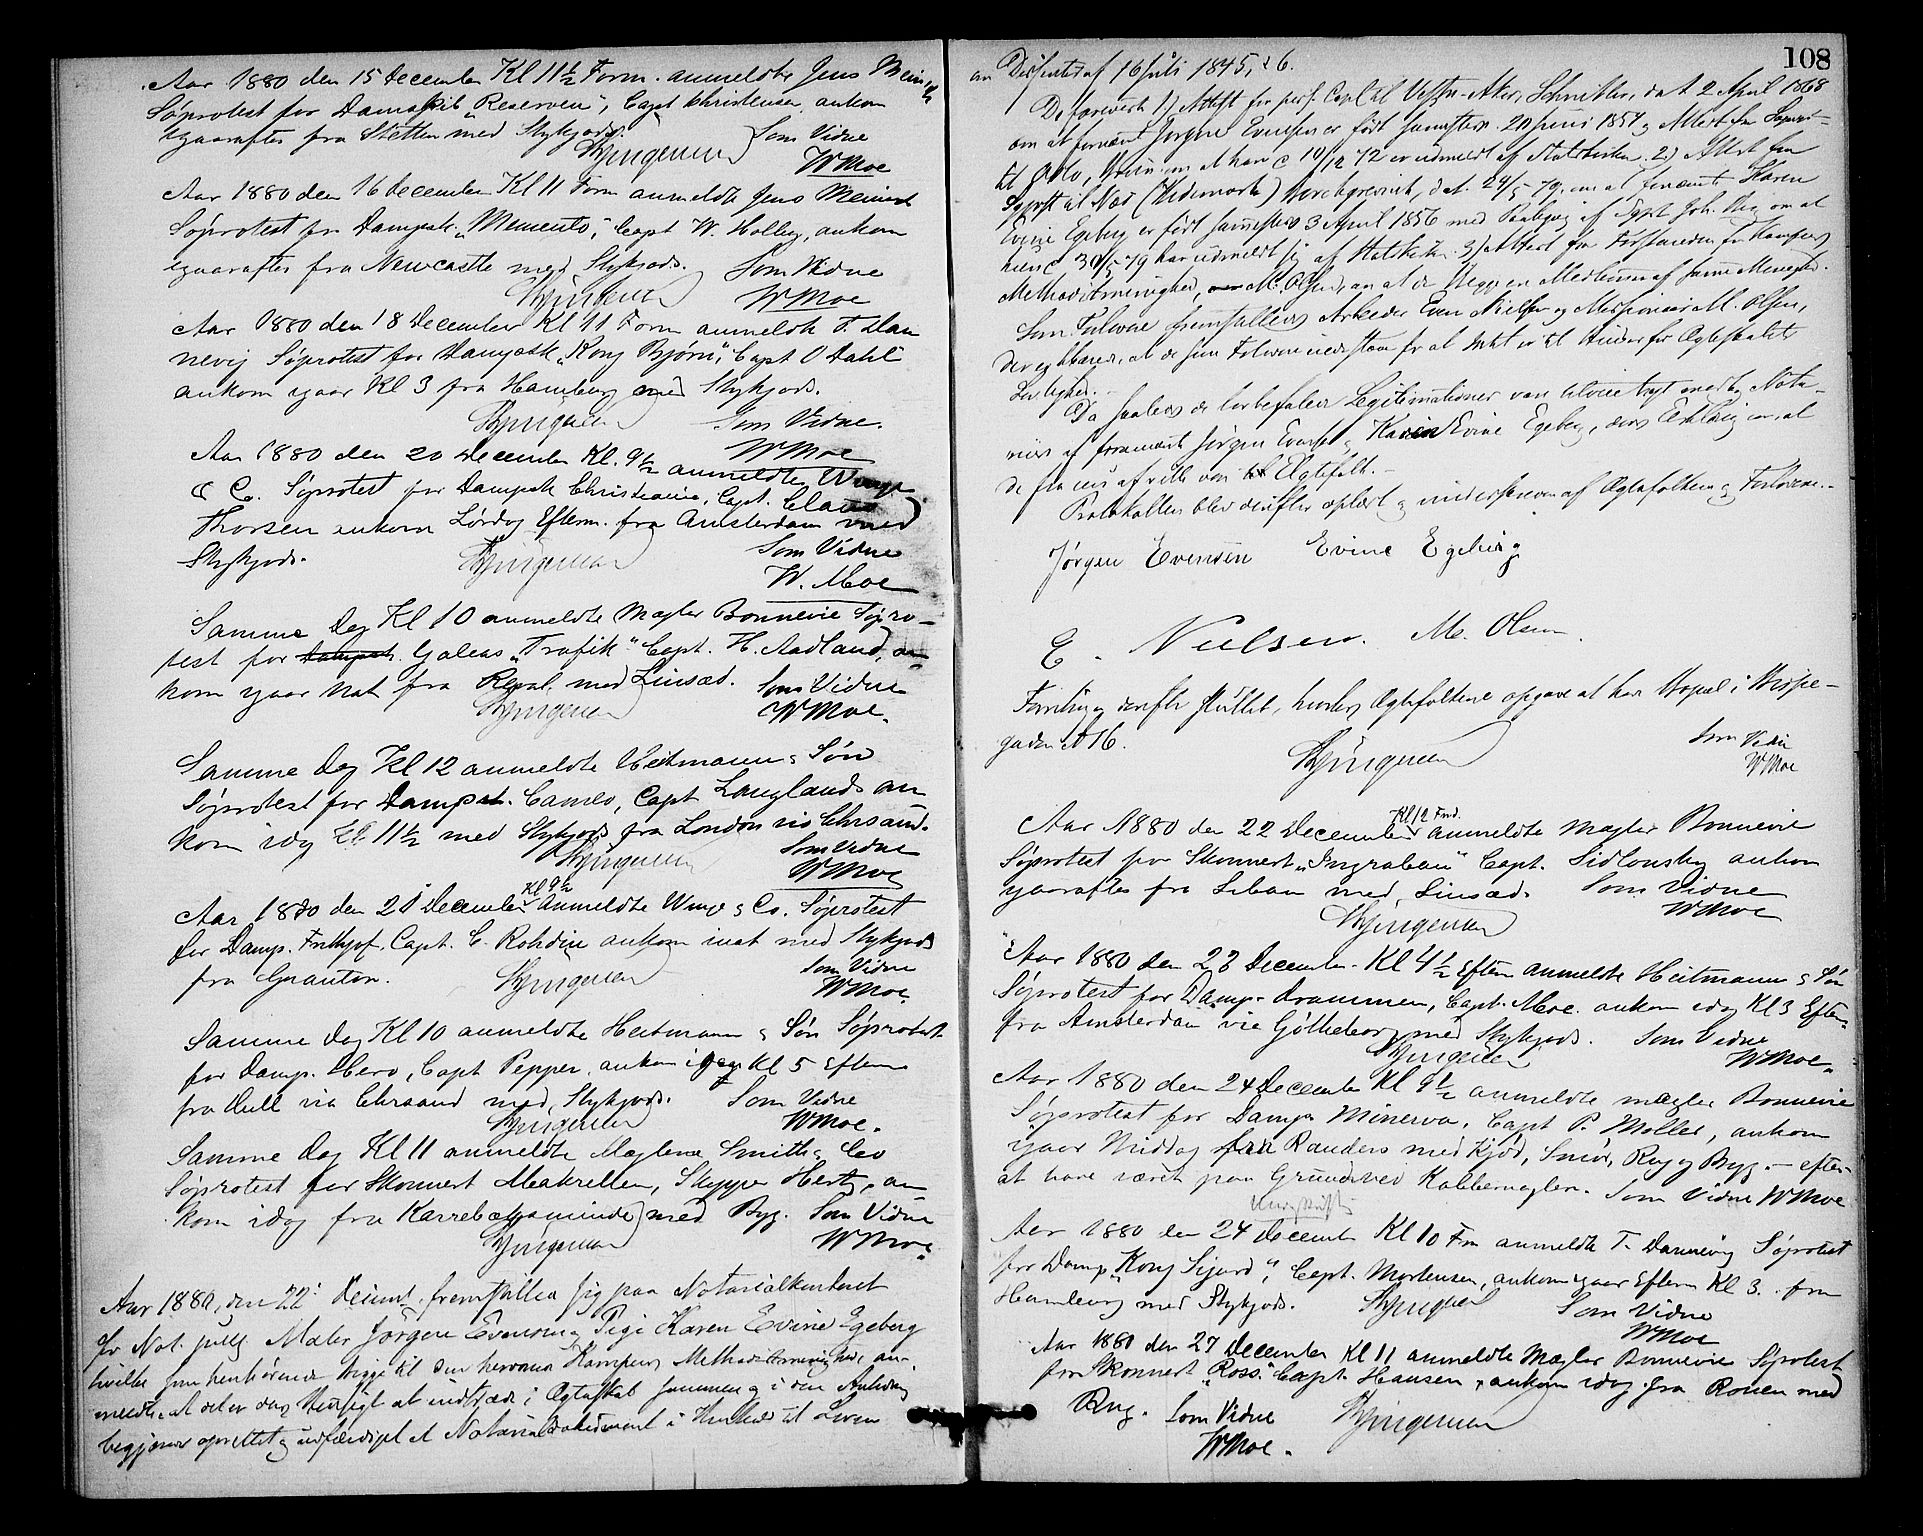 Aar 1880 den 15 December Kl 11½ Form. anmeldte Jens Meinich
Søprotest for Dampskib „Reserven", Capt Christensen, ankom
igaaraftes fra Stettin med Stykgods.
Som Vidne
WMoe
Aar 1880 den 16 December Kl 11 Form anmeldte Jens Meinich
Søprotest for Dampsk. „Memento", Capt W. Holberg, ankom
igaaraftes fra Newcastle med Stykgods.
Som Vidne
WMoe
Aar 1880 den 18 December Kl 11 Form anmeldte T. Dan
nevig Søprotest for Dampsk „Kong Bjørn", Capt O Dahl
ankom igaar Kl 3 fra Hamburg med Stykgods.
Som Vidne.
WMoe
Aar 1880 den 20 December Kl. 9½ anmeldte Winge
& Co. Søprotest for Dampsk Christiania, Capt. Claus
Thorsen ankom Lørdag Efterm. fra Amsterdam med
Stykgods.
Som Vidne
W. Moe
Samme Dag Kl 10 anmeldte Mægler Bonnevie Søpro-
test for Dampsk. Galeas „Trafik" Capt. H. Aadland, an-
kom igaar Nat fra Reval med Linsæd.
Som Vidne
WMoe.
Samme Dag Kl 12 anmeldte Heitmann & Søn
Søprotest for Dampsk. Cameo, Capt Langlands an
kom idag Kl 11½ med Stykgods fra London via Chrsand.
Som Vidne
WMoe
Aar 1880 den 21 December Kl 9½ Anmeldte Winge & Co. Søprotest
for Damp. Frithjof, Capt. C. Rohdin ankom inat med Stykgods
fra Granton.
Som Vidne
WMoe.
Samme Dag Kl 10 anmeldte Heitmann & Søn Søprotest
for Damp. Hero, Capt Pepper, ankom igaar Kl 5 Efterm
fra Hull via Chrsand med Stykgods.
Som Vidne
WMoe.
Samme Dag Kl 11 anmeldte Mæglerne Smith & Co
Søprotest for Skonnert Makrellen, Skipper Hertz, an
kom idag fra Karrebæksminde med Byg.
Som Vidne
WMoe.
Aar 1880, den 22' Decemb. fremstillede sig paa Notarialkontoret
for Not. publ. Maler Jørgen Evensen og Pige Karen Evine Egeberg
hvilke som henhørende begge til den herværende Kampens Methodistmenighed, an-
meldte, at det er deres Hensigt at indtræde i Ægteskab sammen og i den Anledning
begjærer oprettet og udfærdiget et Notarialdokument i Henhold til Loven
108
an Dissentere af 16 Juli 1845, § 6.
De foreviste 1.) Attest fra pers. Capl. til Vestre-Aker, Schnitler, dat 2 April 1868
om at fornævnt Jørgen Evensen er født sammesteds 20 Juni 1851 og Attest fra Sogneprest
til Oslo, om at han c 10/12 72 er udmeldt af Statskirken. 2) Attest fra
Sogneprest til Næs (Hedemark) Borchgrevink, dat. 24/5 79, om at fornævnte Karen
Evine Egeberg er født sammesteds 3 April 1856 med Paategning af Sogpr. Joh. om at
hun c 30/5 79 har udmeldt sig af Statskirken. 3) Attest fra Forstanderen for Kampens
Methodistmenighed, M. Olsen, om at de begge er Medlemmer af samme Menighed.
Som Forlovere fremstilledes Arbeider Even Nielsen og Missionair M. Olsen,
der erklærede, at de som Forlovere indestaae for at Intet er til Hinder for Ægteskabets
Lovlighed.
Da saaledes de lovbefalede Legitimationer vare tilveiebragt modtog Nota-
rius af fornævnte Jørgen Evensen og Karen Evine Egeberg, deres Erklæring om, at
de fra nu af ville være Ægtefolk.
Protokollen blev derefter oplæst og underskreven af Ægtefolkene og Forloverne.
Jørgen Evensen Evine Egeberg
E. Nielsen. M. Olsen.
Forretning derefter sluttet, hvorhos Ægtefolkene opgave at have Bopæl i Bispe-
gaden N 16.
Som Vidne
WMoe
Aar 1880 den 22 December Kl 12 Fmd. anmeldte Mægler Bonnevie
Søprotest for Skonnert „Ingraban" Capt. Sidlonsky ankom
igaaraftes fra Libau med Linsæd.
Som Vidne
WMoe
Aar 1880 den 23 December Kl 4½ Efterm anmeldte Heitmann & Søn
Søprotest for Damp. Drammen, Capt. Moe. ankom idag Kl 3 Efterm.
fra Amsterdam via Gøtheborg med Stykgods.
Som Vidne
WMoe.
Aar 1880 den 24 December Kl 9½ anmeldte Mægler Bonnevie
Søprotest for Damp Minerva, Capt P. Møller, ankom
igaar Middag fra Randers med Kjød, Smør, Rug og Byg. – efter
at have været paa Grund ved Kobbernaglen.
Som Vidne WMoe
Aar 1880 den 24 December Kl 10 Fm anmeldte T. Dannevig Søprotest
for Damp „Kong Sigurd", Capt. Mortensen, ankom igaar Efterm Kl 3. fra
Hamburg med Stykgods.
Som Vidne
WMoe
Aar 1880 den 27 December Kl 11 anmeldte Mægler Bonnevie Søprotest
for Skonnert „Ross", Capt. Hansen, ankom idag fra Rouen med
Rug.
Som Vidne
WMoe.